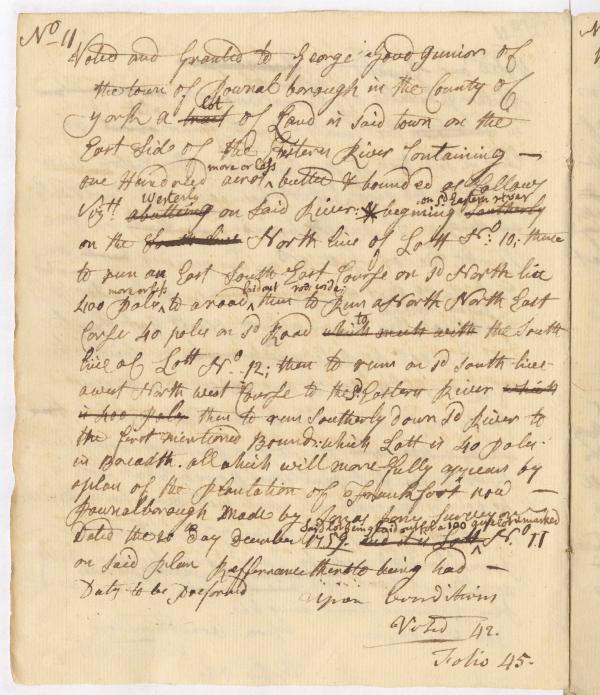 No. 11
Voted and Granted to George Good Junior of
the town of Pownalborough in the County of
York a tract Lot of Land in said town on the
East Side of the Eastern River Containing —
one Hundred acres more or Less butted & bounded as follows
Vizt. Westerly abutting on said River: begining on sd. Eastern river Southerly
on the South line North line of Lott No. 10; thence
to run an East South East Course on sd North line
400 poles more or Less to a road Laid out rods wide; then to Run a North North East
Corse 40 poles on sd Road which meets with to the South
line of Lott No. 12; then to run on sd South line
a west North west Course to the sd. Eastern River which
is 400 poles then to run Southerly down sd River to
the first mentioned Bounds: which Lott is 40 poles
in Breadth. all which will more fully appears by
a plan of the plantation of Frankfort now —
Pownalborough made by Jonas Jones Surveyor
Dated the 20 Day December 1759. said Lot being Laid out for a 100 acre Lott marked and it is Lott No. 11
on said plan Refferance thereto being had —
Duty to be Preformed
upon Conditions
Voted 42.
Folio 45.